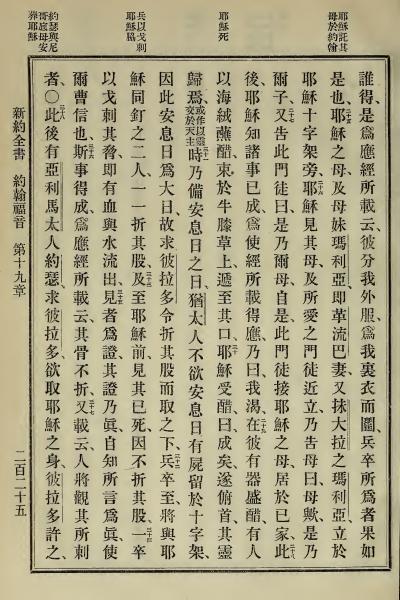 耶穌託其
母於約翰
耶穌死
兵以戈刺
耶穌脇
約瑟與尼
哥底母安
葬耶穌
誰得、是爲應經所載云、彼分我外服、爲我裏衣而鬮、兵卒所爲者果如
是也、二十五耶穌之母、及母妹瑪利亞、卽革流巴妻、又抹大拉之瑪利亞、立於
耶穌十字架旁、二十六耶穌見其母、及所愛之門徒近立、乃告母曰、母歟、是乃
爾子、二十七又告此門徒曰、是乃爾母、自是此門徒接耶穌之母、居於已家、二十八此
後、耶穌知諸事已成、爲使經所載得應、乃曰、我渴、二十九在彼有器盛醋、有人
以海絨蘸醋、束於牛膝草上、遞至其口、三十耶穌受醋曰、成矣、遂俯首、其靈
歸焉、或作以靈交於天主三十一時乃備安息日之日、猶太人不欲安息日有屍留於十字架、
因此安息日爲大日、故求彼拉多令折其股而取之下、三十二兵卒至、將與耶
穌同釘之二人、一一折其股、三十三及至耶穌前、見其已死、因不折其股、三十四一卒
以戈刺其脅、卽有血與水流出、三十五見者爲證、其證乃眞、自知所言爲眞、使
爾曹信也、三十六斯事得成、爲應經所載云、其骨不折、三十七又載云、人將觀其所刺
者、〇三十八此後有亞利馬太人約瑟、求彼拉多、欲取耶穌之身、彼拉多許之、
新約全書 約翰福音 第十九章 二百二十五